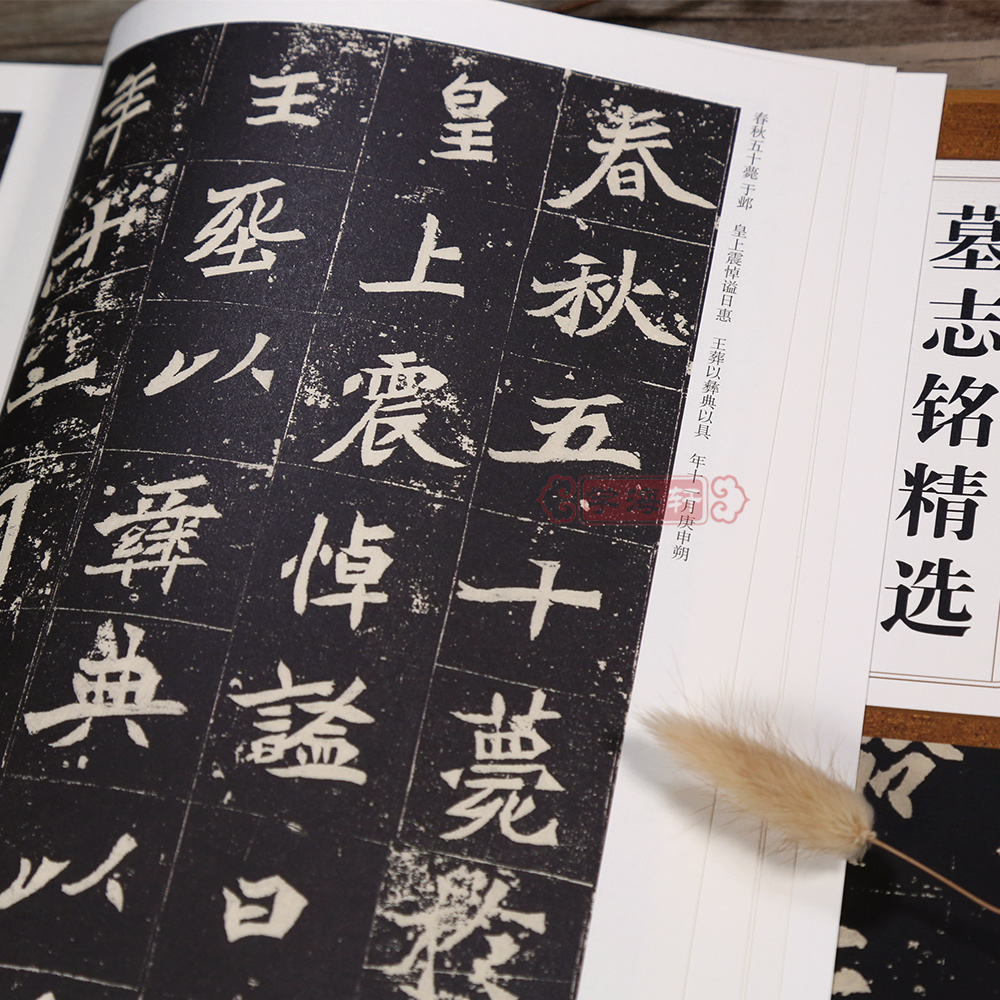 春秋五十薨于邺 皇上震悼谥曰惠 王葬以彝典以具 年十二月庚申朔
春秋五十薨
皇上震悼謚曰
王葬以彝典以
年十二月
墓志铭精选